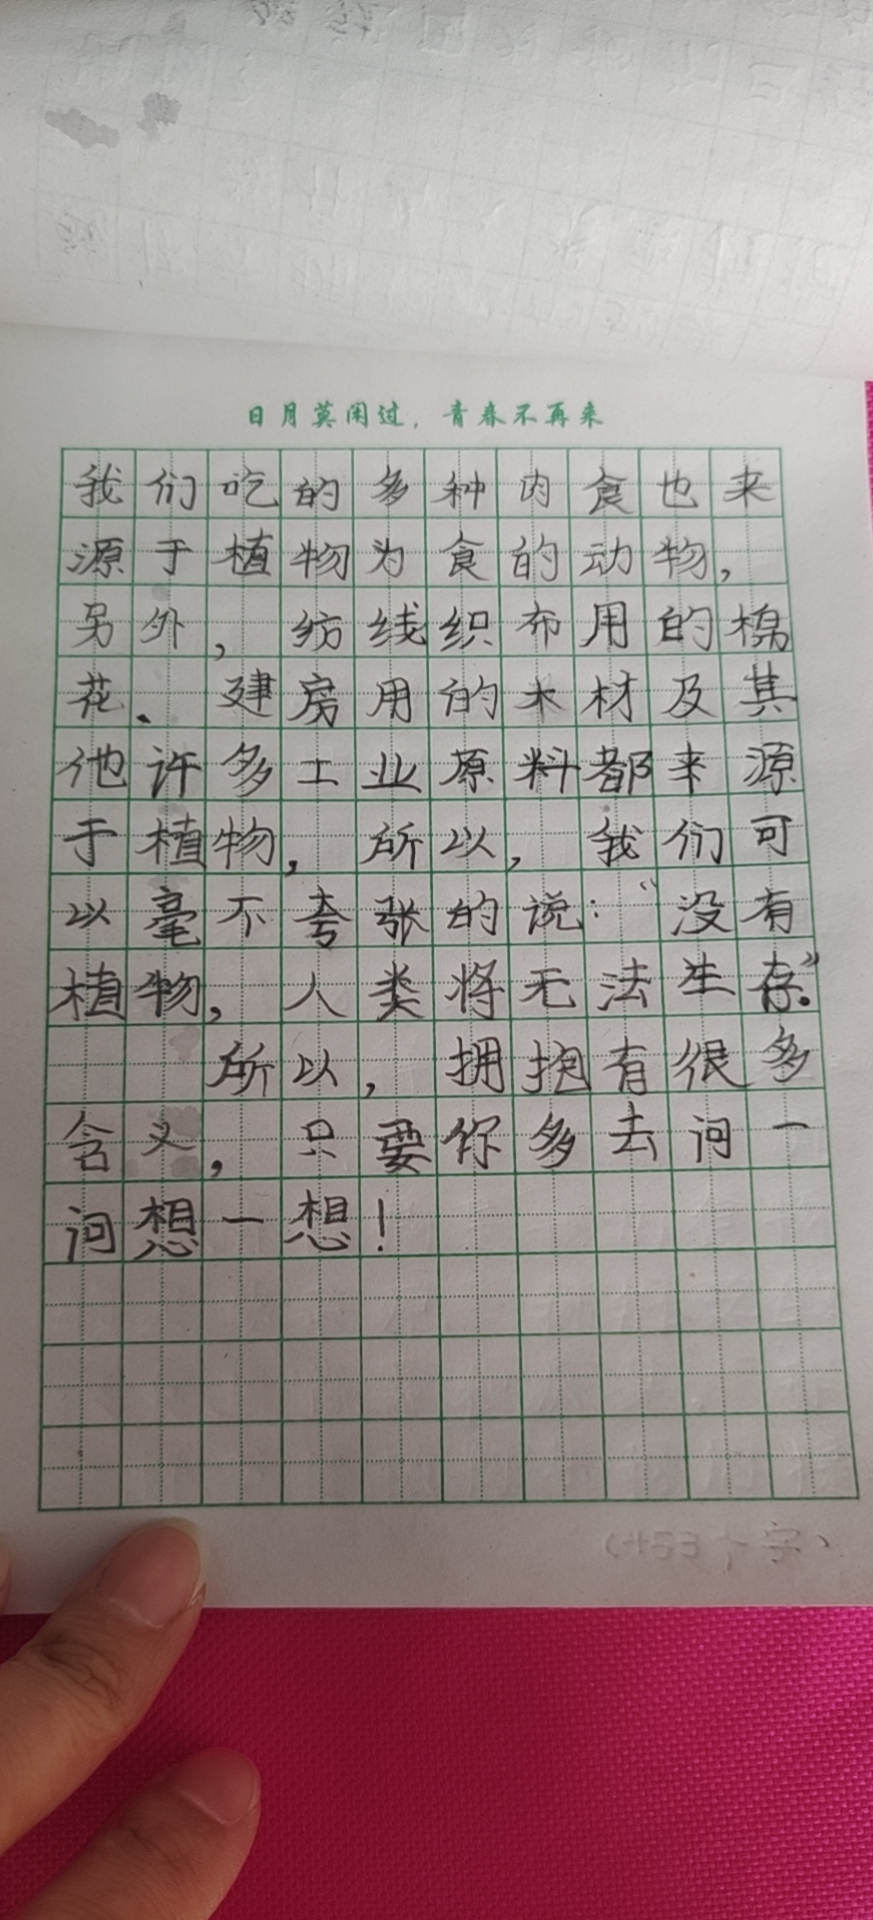 日月莫闲过，青春不再来
我们吃的多种肉食也来
源于植物为食的动物，
另外，纺线织布用的棉
花、建房用的木材及其
他许多工业原料都来源
于植物，所以，我们可
以毫不夸张的说：“没有
植物，人类将无法生存。”
所以，拥抱有很多
含义，只要你多去问一
问想一想！
（453个字）